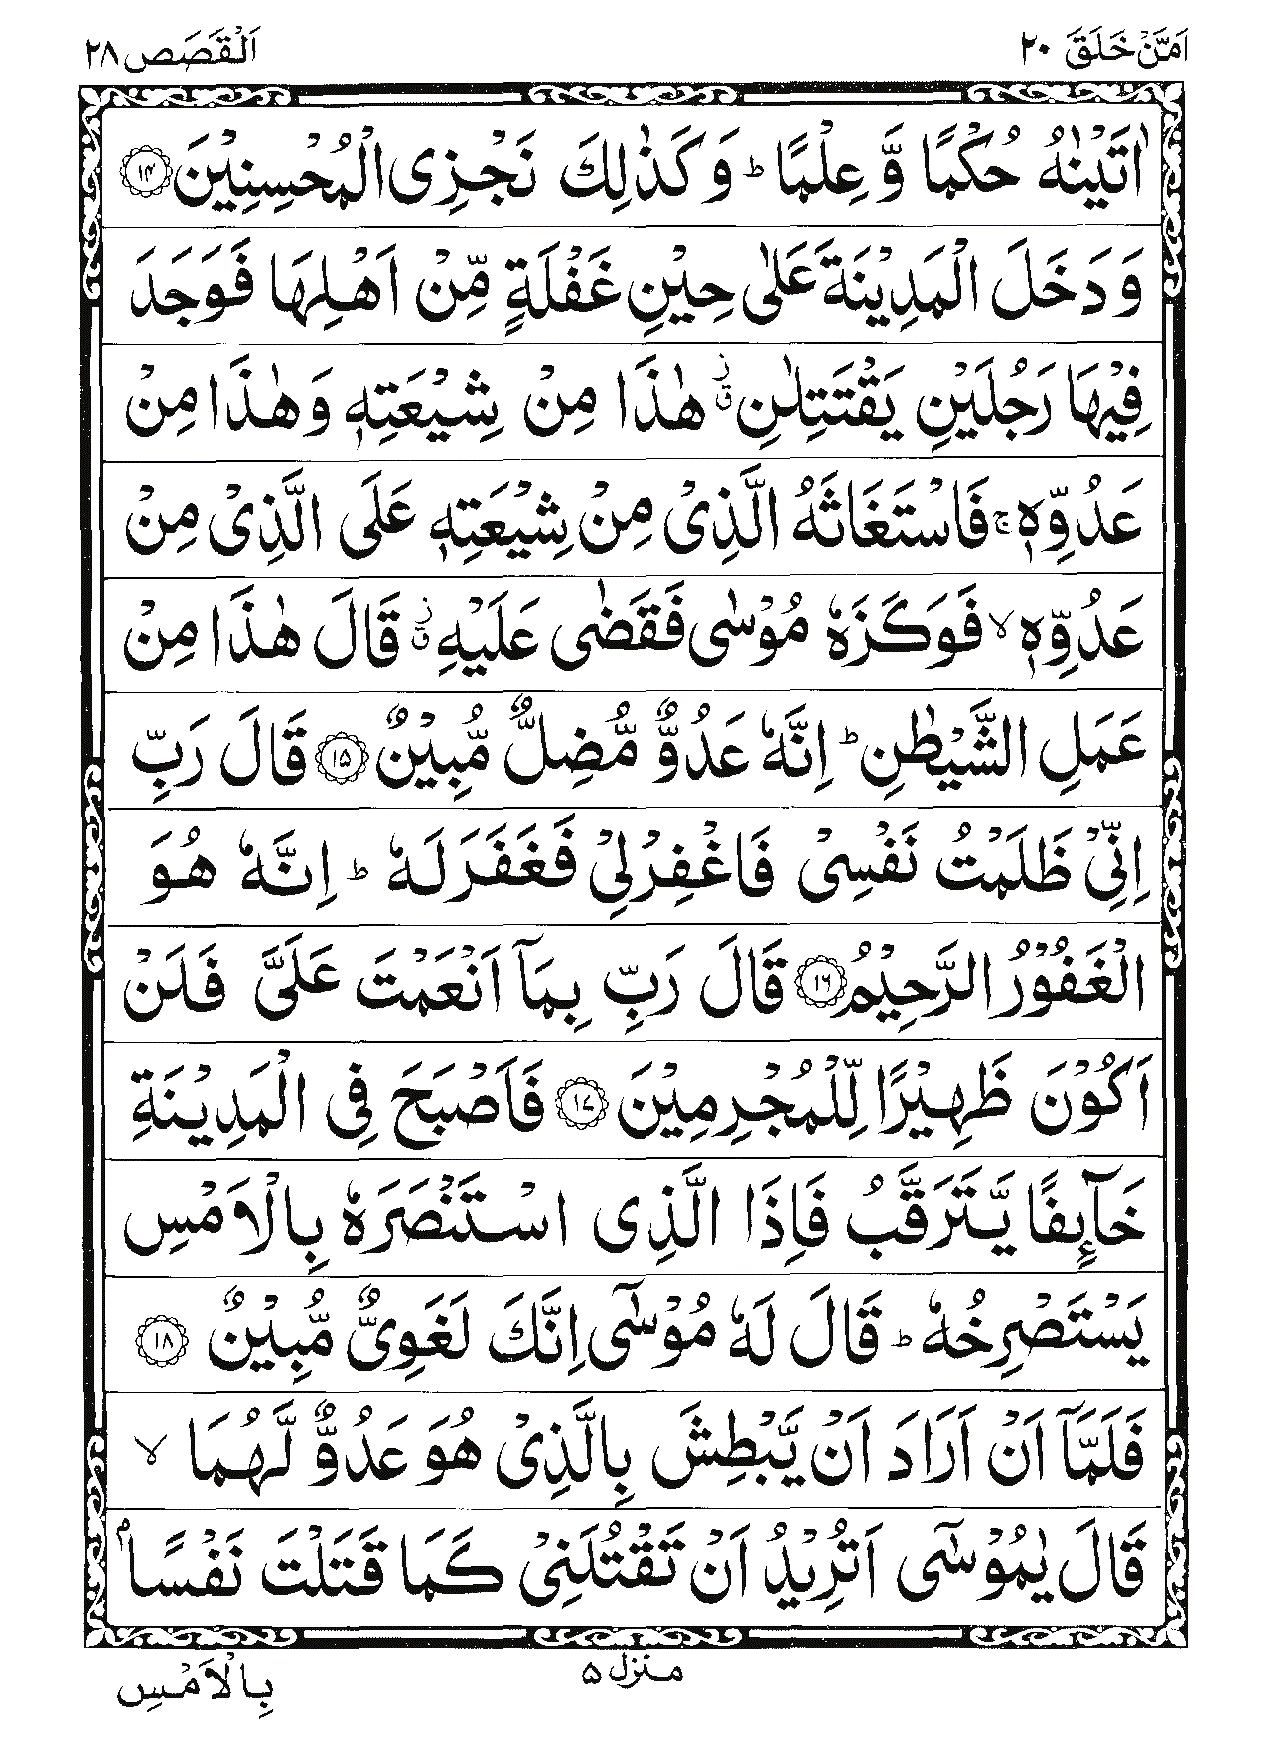 اَمَّنْ خَلَقَ ٢٠
اَلْقَصَص ٢٨
اٰتَيْنٰهُ حُكْمًا وَّ عِلْمًا ؕ وَ كَذٰلِكَ نَجْزِى الْمُحْسِنِيْنَ ﴿۱۴﴾
وَ دَخَلَ الْمَدِيْنَةَ عَلٰى حِيْنِ غَفْلَةٍ مِّنْ اَهْلِهَا فَوَجَدَ
فِيْهَا رَجُلَيْنِ يَقْتَتِلٰنِ ۫ۗ هٰذَا مِنْ شِيْعَتِهٖ وَ هٰذَا مِنْ
عَدُوِّهٖ ۚ فَاسْتَغَاثَهُ الَّذِىْ مِنْ شِيْعَتِهٖ عَلَى الَّذِىْ مِنْ
عَدُوِّهٖ ۙ فَوَكَزَهٗ مُوْسٰى فَقَضٰى عَلَيْهِ ۫ۗ قَالَ هٰذَا مِنْ
عَمَلِ الشَّيْطٰنِ ؕ اِنَّهٗ عَدُوٌّ مُّضِلٌّ مُّبِيْنٌ ﴿۱۵﴾ قَالَ رَبِّ
اِنِّىْ ظَلَمْتُ نَفْسِىْ فَاغْفِرْ لِىْ فَغَفَرَ لَهٗ ؕ اِنَّهٗ هُوَ
الْغَفُوْرُ الرَّحِيْمُ ﴿۱۶﴾ قَالَ رَبِّ بِمَاۤ اَنْعَمْتَ عَلَىَّ فَلَنْ
اَكُوْنَ ظَهِيْرًا لِّلْمُجْرِمِيْنَ ﴿۱۷﴾ فَاَصْبَحَ فِى الْمَدِيْنَةِ
خَآٮِٕفًا يَّتَرَقَّبُ فَاِذَا الَّذِى اسْتَنْصَرَهٗ بِالْاَمْسِ
يَسْتَصْرِخُهٗ ؕ قَالَ لَهٗ مُوْسٰٓى اِنَّكَ لَغَوِىٌّ مُّبِيْنٌ ﴿۱۸﴾
فَلَمَّاۤ اَنْ اَرَادَ اَنْ يَّبْطِشَ بِالَّذِىْ هُوَ عَدُوٌّ لَّهُمَا ۙ
قَالَ يٰمُوْسٰٓى اَتُرِيْدُ اَنْ تَقْتُلَنِىْ كَمَا قَتَلْتَ نَفْسًاۢ
منزل ۵
بِالْاَمْسِ